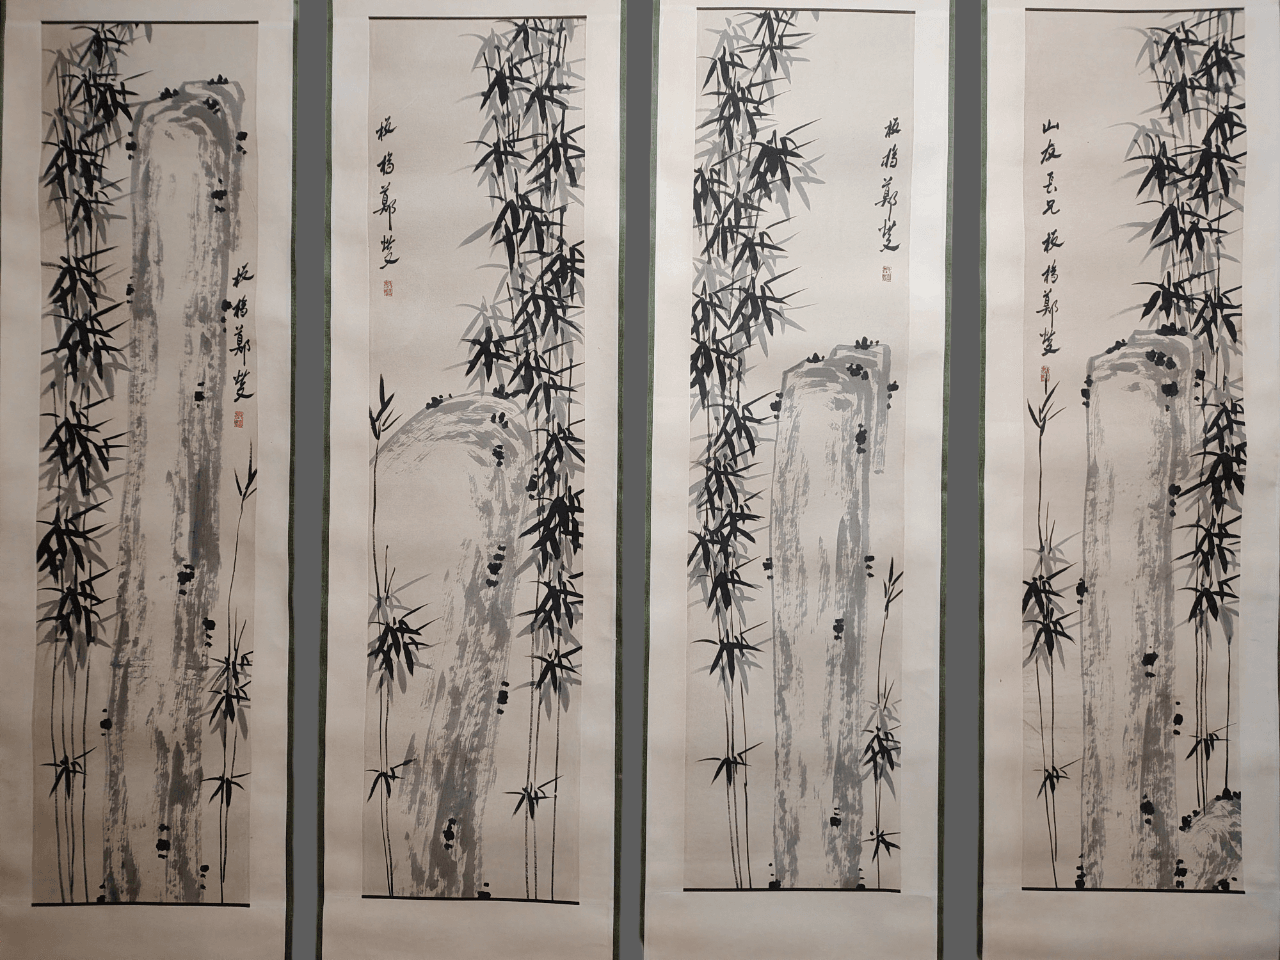 山友長兄板橋鄭燮
板橋鄭燮
板橋鄭燮
板橋鄭燮